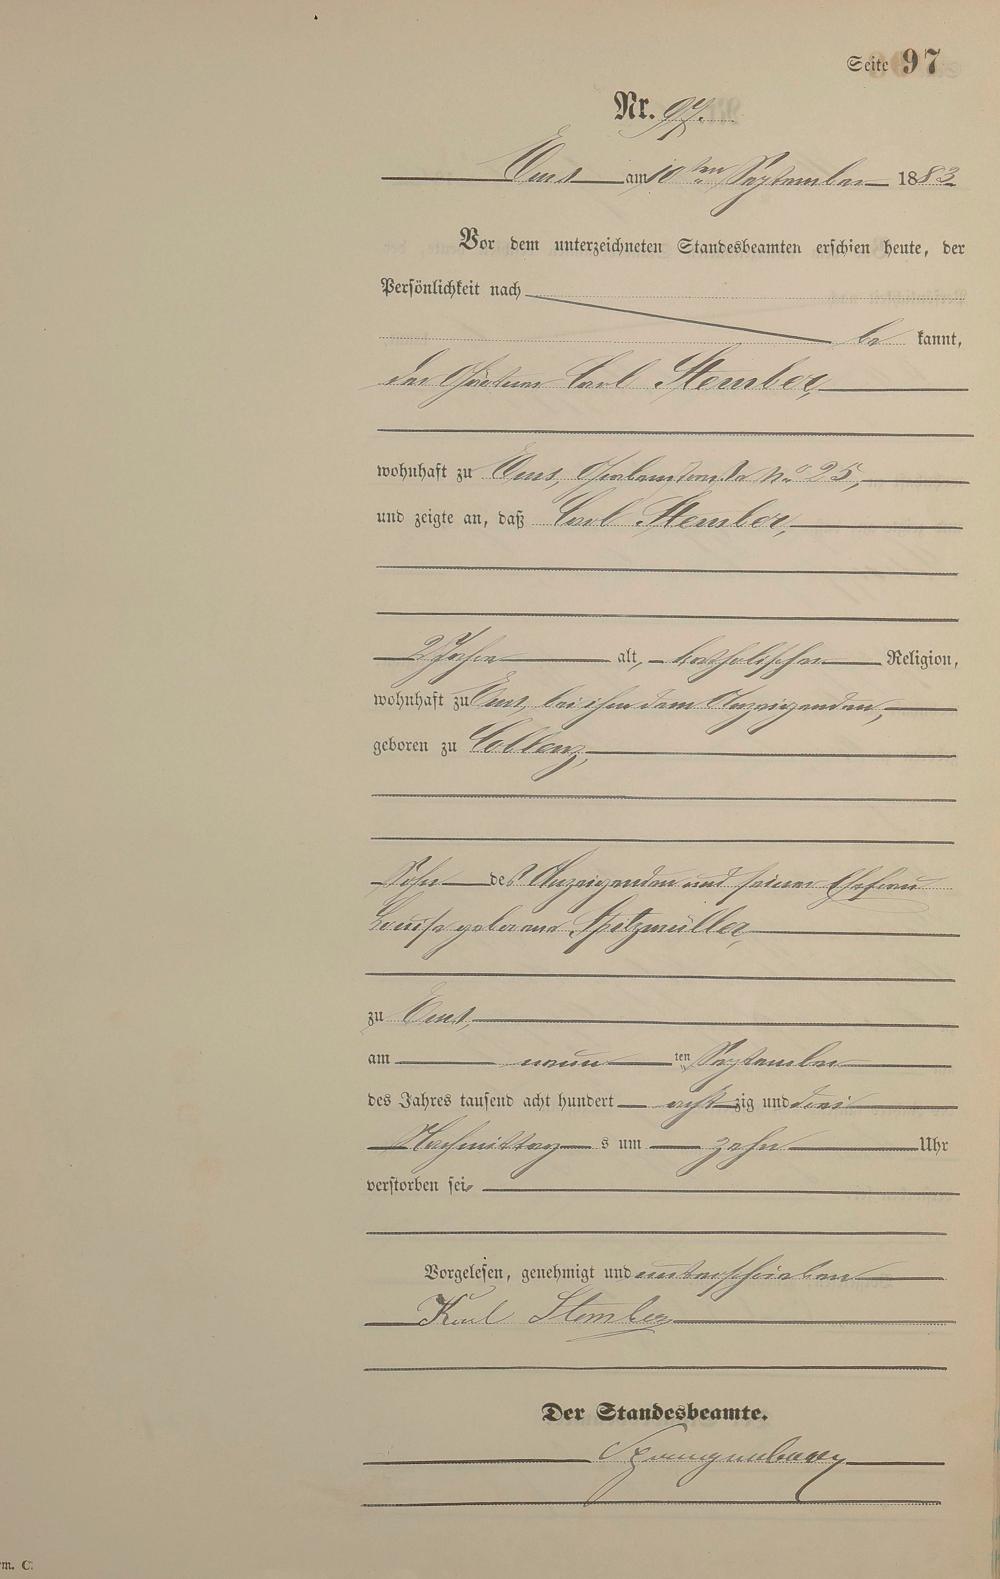 Seite 97
Nr. 97.
Ems am 10ten September 1883
Vor dem unterzeichneten Standesbeamten erschien heute, der
Persönlichkeit nach
be kannt,
der Gärtner Carl Stember,
wohnhaft zu Ems, Grabenstraße No 25,
und zeigte an, daß Carl Stember,
2 Jahre alt, katholischer Religion,
wohnhaft zu Ems, bei ihm dem Anzeigenden,
geboren zu Coblenz,
Sohn des Anzeigenden und seiner Ehefrau
Louise geborene Spitzmüller,
zu Ems,
am neun ten September
des Jahres tausend acht hundert acht zig und drei
Nachmittag s um zehn Uhr
verstorben sei.
Vorgelesen, genehmigt und unterschrieben
Karl Stember
Der Standesbeamte.
m. C.